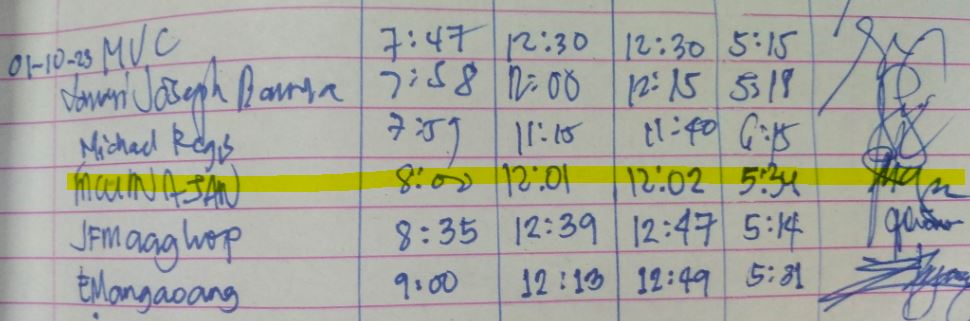 01-10-23 MVC 7:47 12:30 12:30 5:15
Joseph 7:58 12:00 12:15 5:19
Michael Regis 7:59 11:15 11:40 6:15
8:00 12:01 12:02 5:34
JFMaaghop 8:35 12:39 12:47 5:14
EMangaoang 9:00 12:13 12:49 5:31